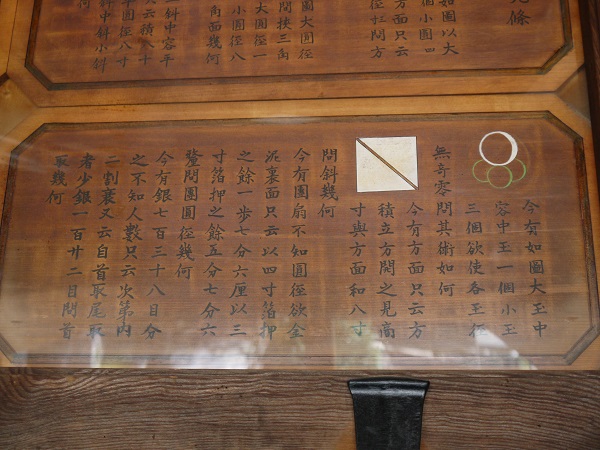 條
如圖以大
個小圓四
方面只云
問方
圖大圓徑
問挾三角
大圓徑一
小圓徑八
角面幾何
斜中容平
云積八十
圓徑八寸
斜中斜小斜
何
今有如圖大王中
容中王一個小王
三個欲使各王徑
無奇零問其術如何
今有方面只云方
積立方開之見商
寸與方面和八寸
問斜幾何
今有團扇不知圓徑欲金
泥裏面只云以四寸箔押
之餘一步七分六厘以三
寸箔押之餘五分七分六
釐問團圓徑幾何
今有銀七百三十八目分
之不知人數只云次第內
二割衰又云自首取尾取
者少銀一百廿二目問首
取幾何